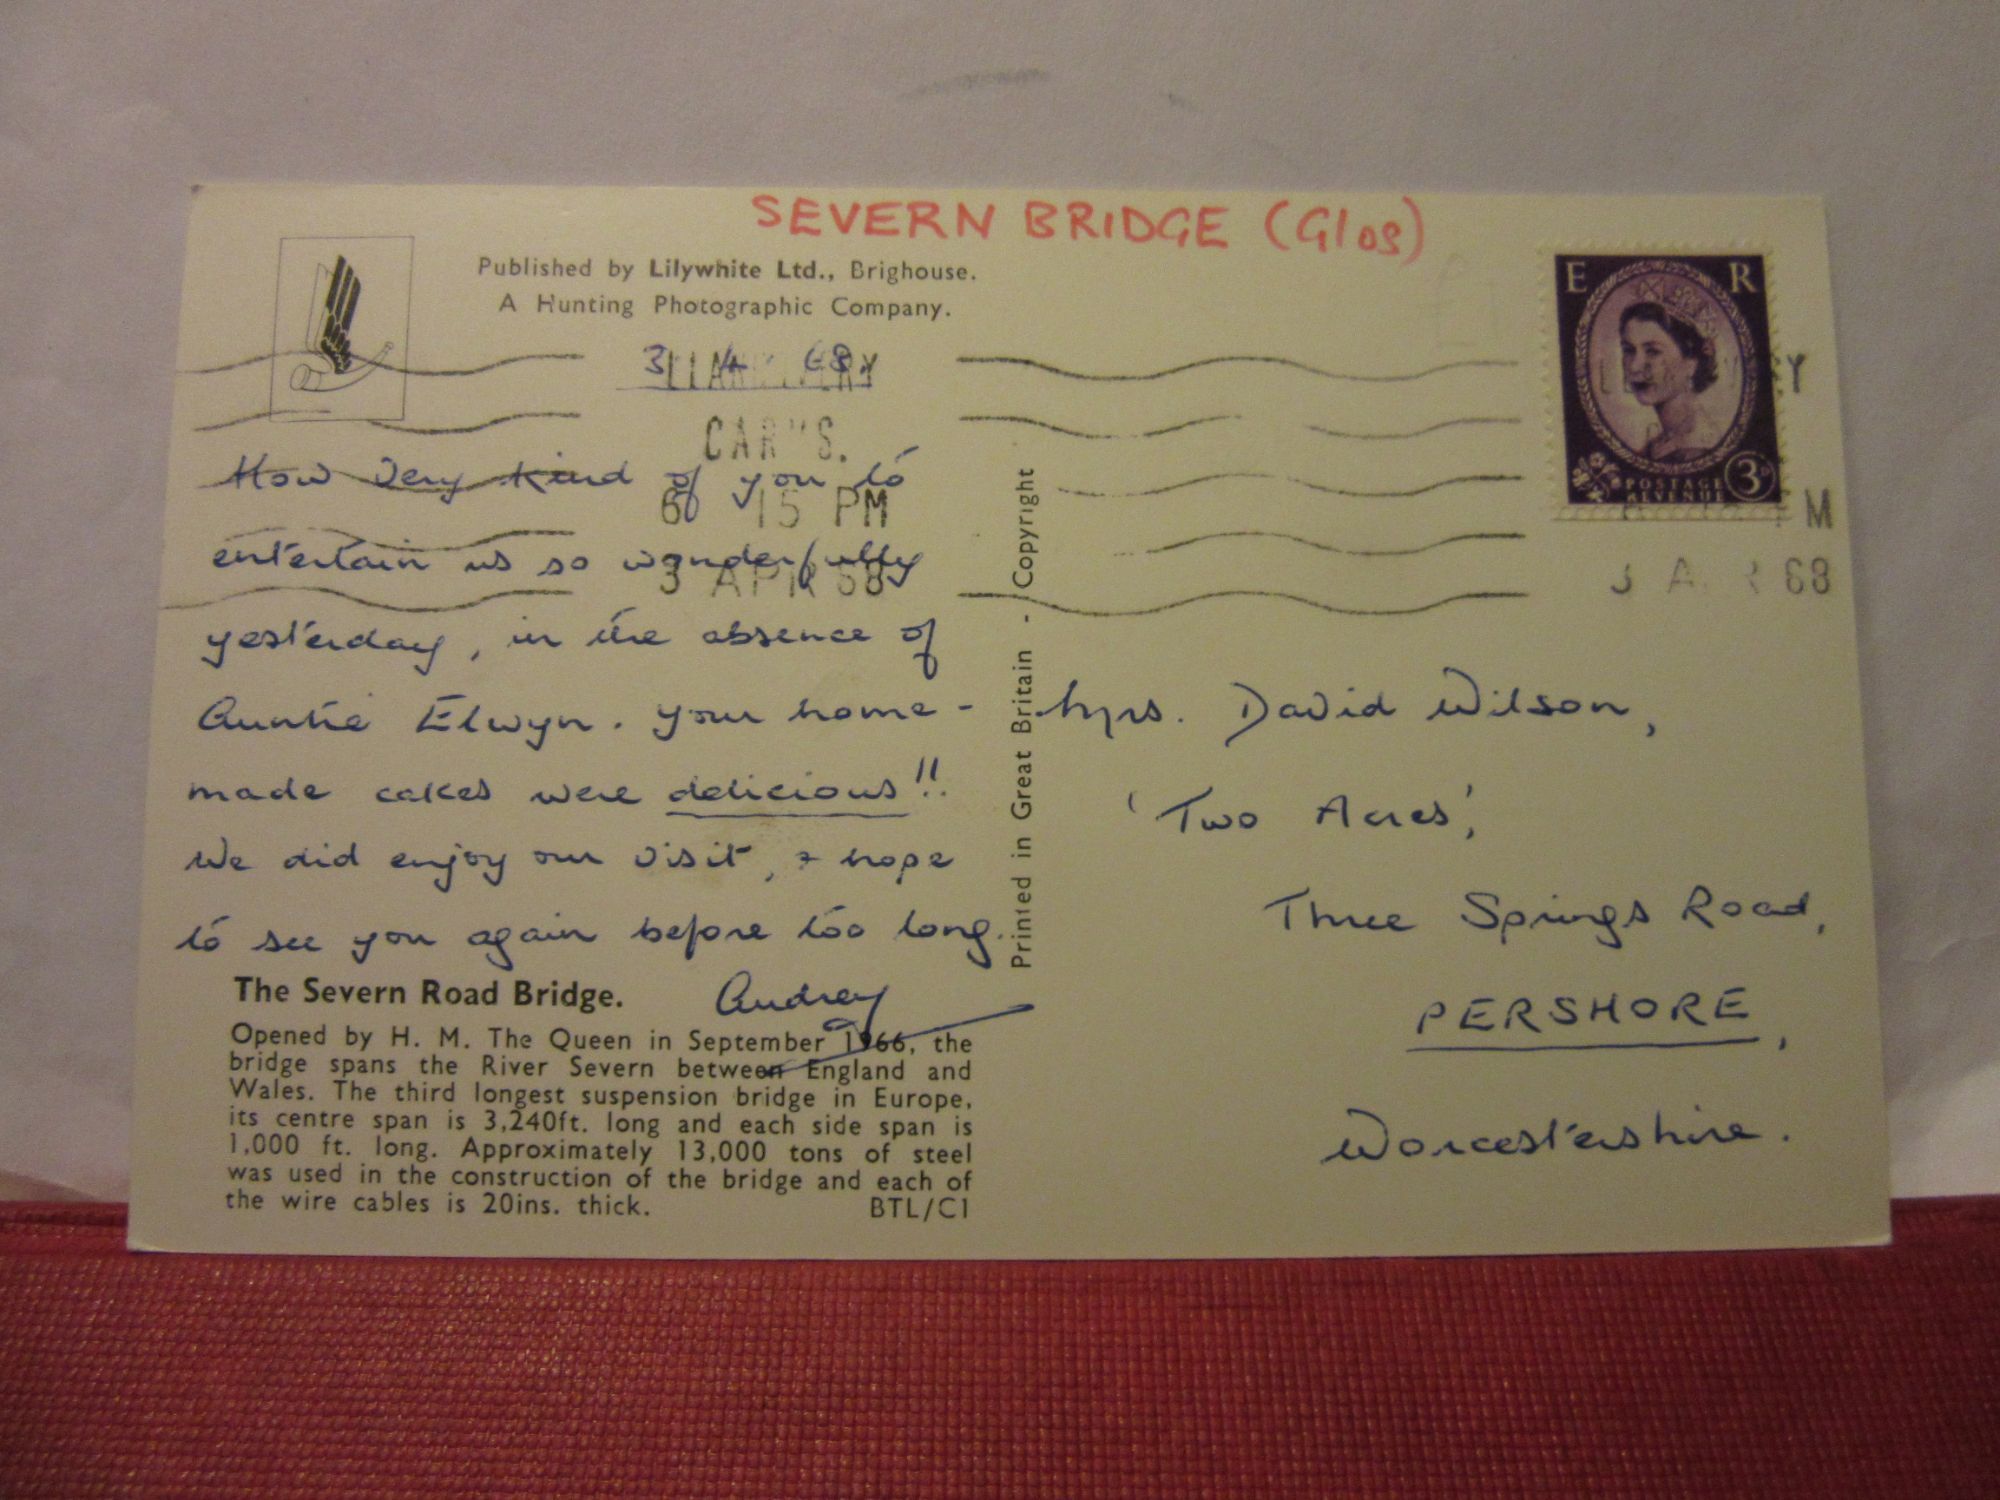 SEVERN BRIDGE (Glos)
Published by Lilywhite Ltd., Brighouse.
A Hunting Photographic Company.
3 4 68.
CARMS.
6 15 PM
3 APR 68
How very kind of you to
entertain us so wonderfully
yesterday, in the absence of
Auntie Elwyn. Your home-
made cakes were delicious!!
We did enjoy our visit, & hope
to see you again before too long.
Audrey
The Severn Road Bridge.
Opened by H. M. The Queen in September 1966, the
bridge spans the River Severn between England and
Wales. The third longest suspension bridge in Europe,
its centre span is 3,240ft. long and each side span is
1,000 ft. long. Approximately 13,000 tons of steel
was used in the construction of the bridge and each of
the wire cables is 20ins. thick. BTL/C1
Printed in Great Britain - Copyright
E R
POSTAGE
REVENUE
3D
Y
M
68
Mrs. David Wilson,
'Two Acres',
Three Springs Road,
PERSHORE,
Worcestershire.